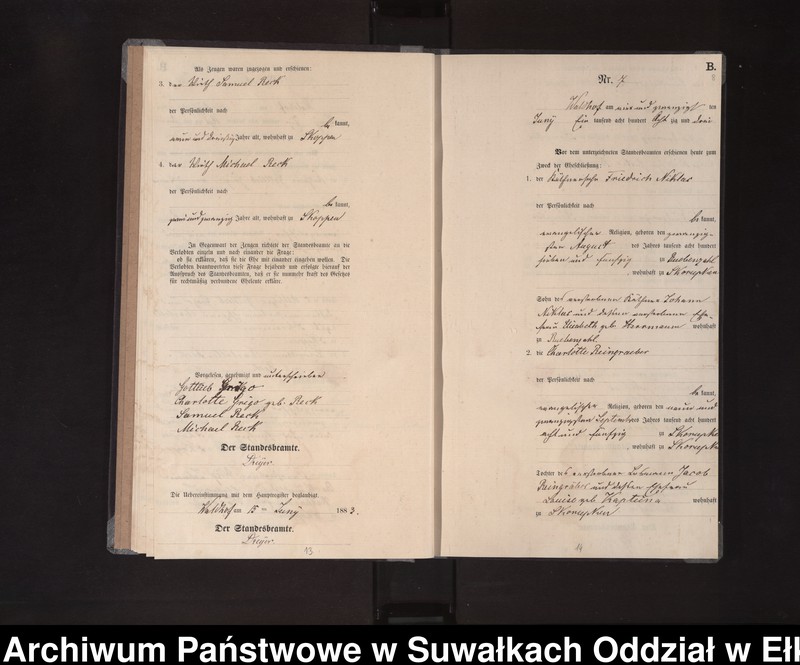 Als Zeugen waren zugezogen und erschienen:
3. der Wirth Samuel Reck
der Persönlichkeit nach
be kannt,
neun und dreißig Jahre alt, wohnhaft zu Skoppen
4. der Wirth Michael Reck
der Persönlichkeit nach
be kannt,
und zwanzig Jahre alt, wohnhaft zu Skoppen
In Gegenwart der Zeugen richtete der Standesbeamte an die
Verlobten einzeln und nach einander die Frage:
ob sie erklären, daß sie die Ehe mit einander eingehen wollen. Die
Verlobten beantworteten diese Frage bejahend und erfolgte hierauf der
Ausspruch des Standesbeamten, daß er sie nunmehr kraft des Gesetzes
für rechtmäßig verbundene Eheleute erkläre.
Vorgelesen, genehmigt und unterschrieben
Gottlieb Grigo
Charlotte Grigo geb. Reck
Samuel Reck
Michael Reck
Der Standesbeamte.
Die Uebereinstimmung mit dem Hauptregister beglaubigt
Waldhof am 15 ten Juny 1883.
Der Standesbeamte.
13
B.
8
Nr. 7
Waldhof am ein und zwanzigt ten
Juny Ein tausend acht hundert Acht zig und drei
Vor dem unterzeichneten Standesbeamten erschienen heute zum
Zweck der Eheschließung:
1. der Käthnersohn Friedrich Niklas
der Persönlichkeit nach
be kannt,
evangelischer Religion, geboren den zwanzig-
sten August des Jahres tausend acht hundert
sieben und fünfzig zu
, wohnhaft zu Skorupken
Sohn des verstorbenen Käthner Johann
Niklas und dessen verstorbene Ehe-
frau Elisabeth geb. wohnhaft
zu
2. die Charlotte Reingraeber
der Persönlichkeit nach
be kannt,
evangelischer Religion, geboren den neun und
zwanzigsten September des Jahres tausend acht hundert
acht und fünfzig zu Skorupken
, wohnhaft zu Skorupken
Tochter des verstorbenen Jacob
und dessen Ehefrau
Louise geb. wohnhaft
zu Skorupken
14
Archiwum Państwowe w Suwałkach Oddział w Ełk